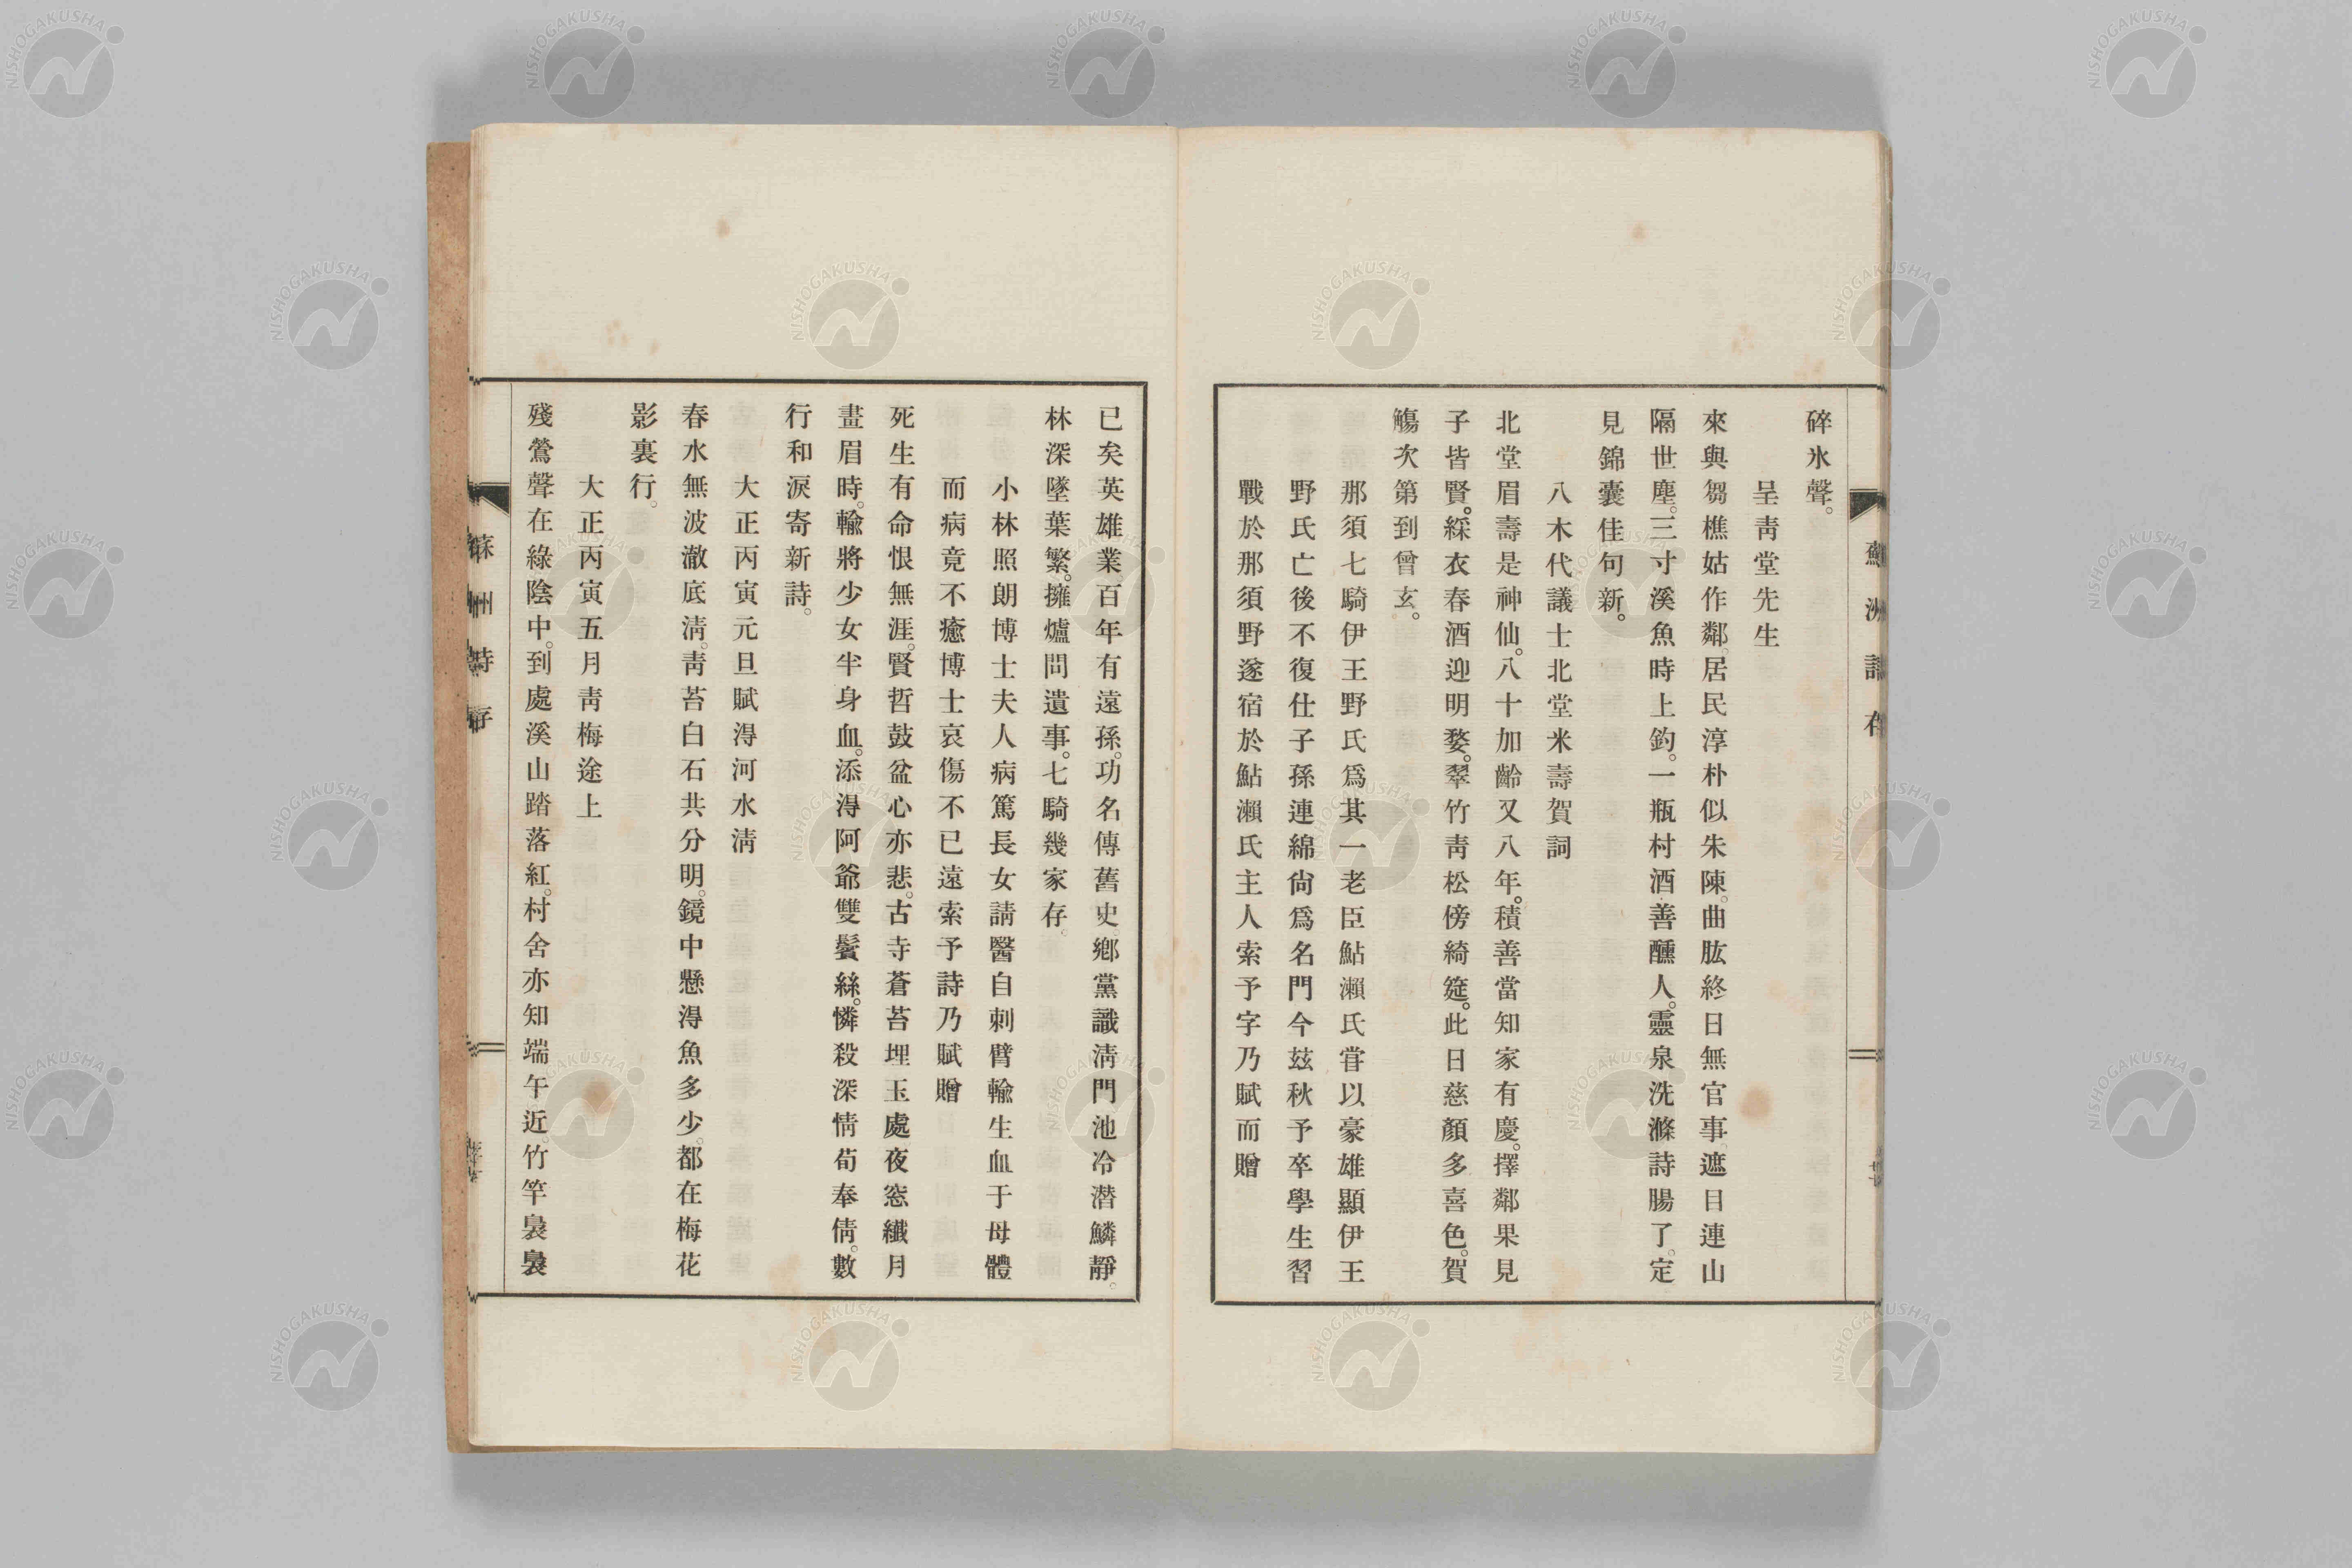 蘇洲詩存
碎氷聲。
呈靑堂先生
來與芻樵姑作鄰。居民淳朴似朱陳。曲肱終日無官事。遮日連山
隔世塵。三寸溪魚時上釣。一瓶村酒善醺人。靈泉洗滌詩腸了。定
見錦囊佳句新。
八木代議士北堂米壽賀詞
北堂眉壽是神仙。八十加齡又八年。積善當知家有慶。擇鄰果見
子皆賢。綵衣春酒迎明婺。翠竹靑松傍綺筵。此日慈顏多喜色。賀
觴次第到曾玄。
那須七騎伊王野氏爲其一老臣鮎瀨氏甞以豪雄顯伊王
野氏亡後不復仕子孫連綿尙爲名門今玆秋予卒學生習
戰於那須野遂宿於鮎瀨氏主人索予字乃賦而贈
已矣英雄業。百年有遠孫。功名傳舊史。鄕黨識淸門。池冷潜鱗靜。
林深墜葉繁。擁爐問遺事。七騎幾家存。
小林照朗博士夫人病篤長女請醫自刺臂輸生血于母體
而病竟不癒博士哀傷不已遠索予詩乃賦贈
死生有命恨無涯。賢哲鼓盆心亦悲。古寺蒼苔埋玉處。夜窓纖月
畫眉時。輸將少女半身血。添得阿爺雙鬢絲。憐殺深情荀奉倩。數
行和淚寄新詩。
大正丙寅元旦賦得河水淸
春水無波澈底淸。靑苔白石共分明。鏡中懸得魚多少。都在梅花
影裏行。
大正丙寅五月靑梅途上
殘鶯聲在綠陰中。到處溪山踏落紅。村舍亦知端午近。竹竿裊裊
蘇洲詩存
NISHOGAKUSHA